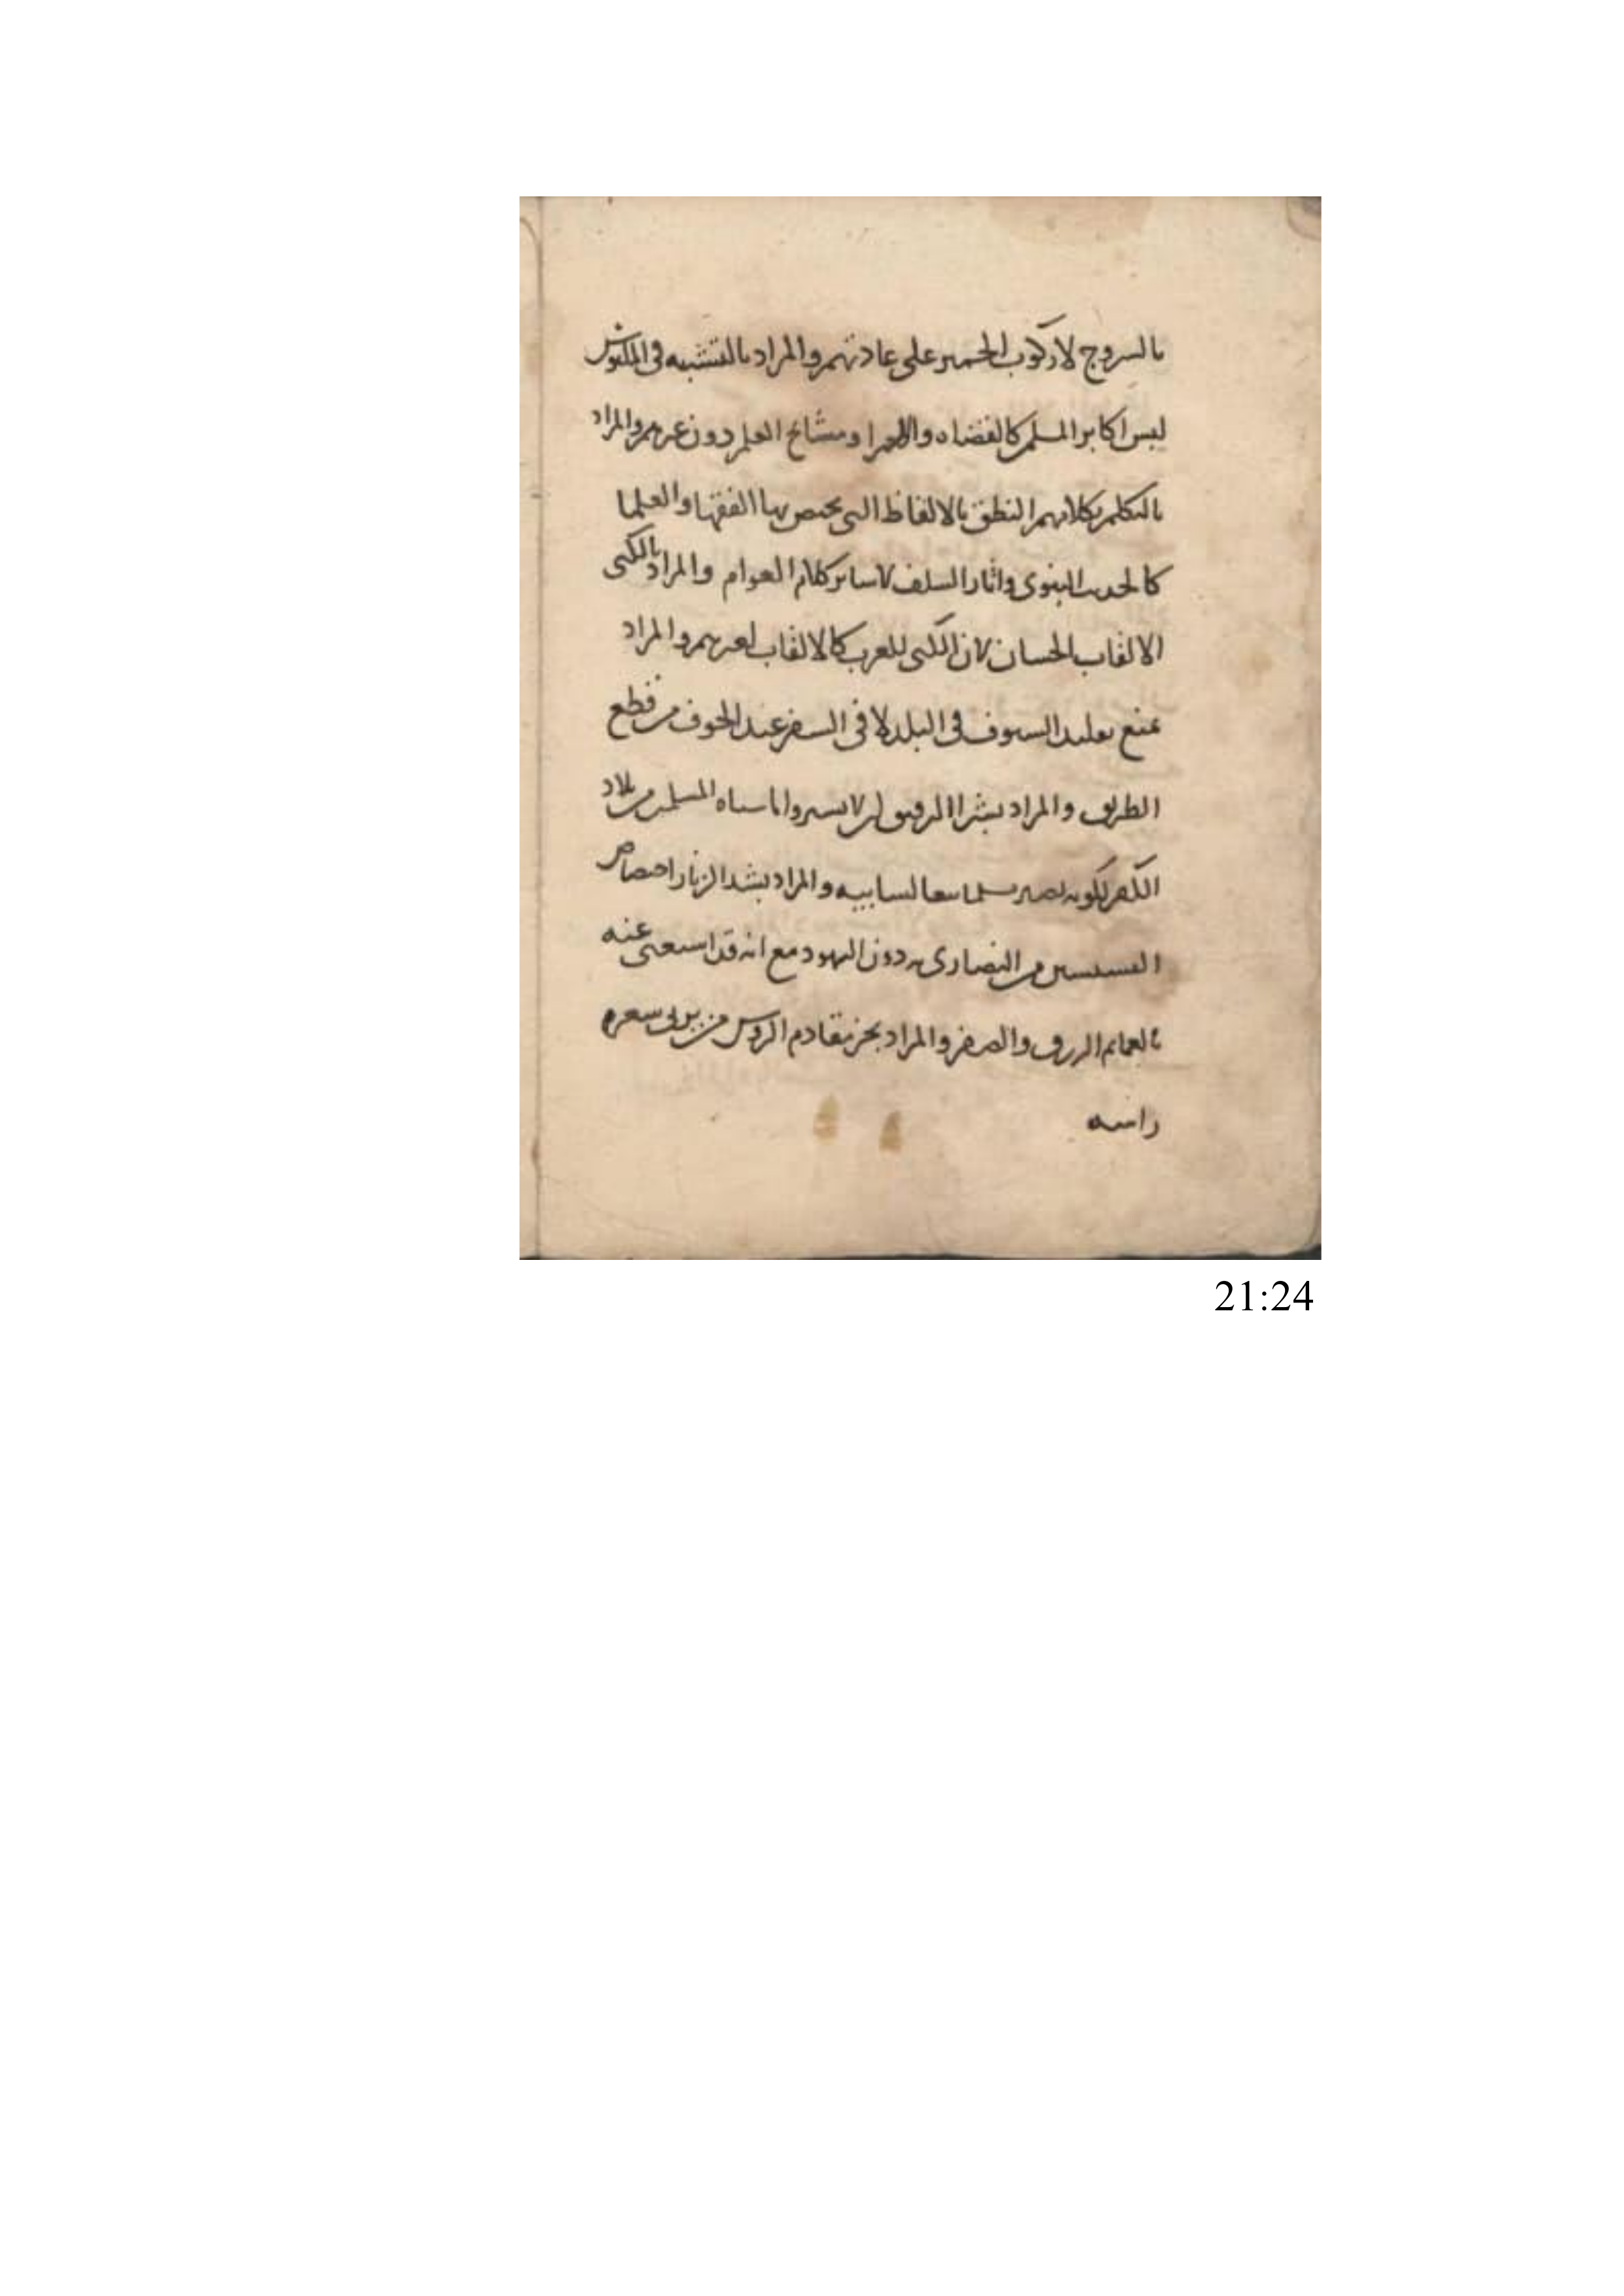 بالسروج لا ركوب الحمير على عادتهم والمراد بالتشبه في الملبوس
لبس اكابر المسلمين كالقضاه والامرا ومشايخ العلم دون غيرهم والمراد
بالتكلم بكلامهم النطق بالالفاظ التي يختص بها الفقها والعلما
كالحديث النبوي واثار السلف لا ساير كلام العوام والمراد بالكنى
الالقاب الحسان لان الكنى للعرب كالالقاب لغيرهم والمراد
بمنع تقليد السيوف في البلد لا في السفر عند الخوف من قطع
الطريق والمراد بشرا الرقيق ان لا يشتروا ما سباه المسلمين من بلاد
الكفر لكونه يصير مسلما تبعا لسابيه والمراد بشد الزنار اختصاص
القسيسين من النصارى به دون اليهود مع انه قد استغنى عنه
بالعمايم الزرق والصفر والمراد بجز مقادم الروس من يربي شعره
راسه
21:24